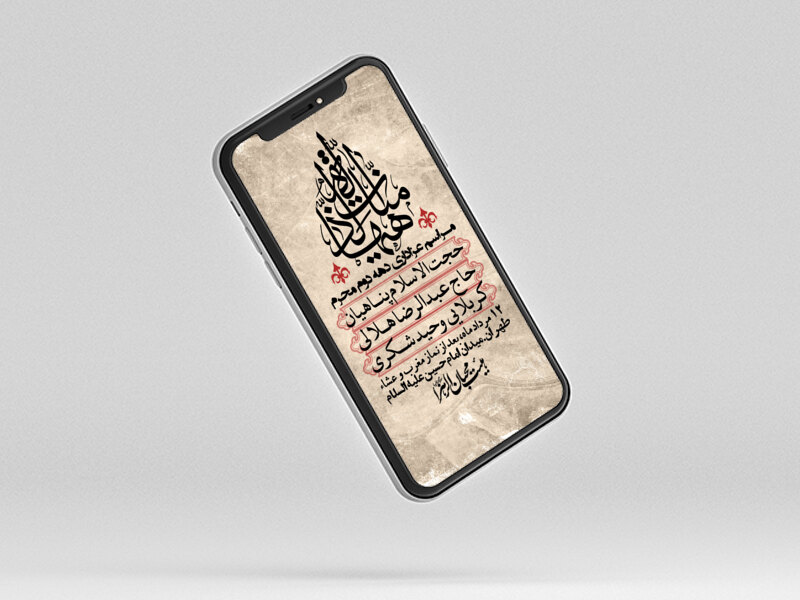 هیهات منا الذلة
مراسم عزاداری دهه دوم محرم
حجت الاسلام پناهیان
حاج عبدالرضا هلالی
کربلایی وحید شکری
۱۲ مرداد ماه، بعد از نماز مغرب و عشاء
طهران، میدان امام حسین علیه السلام
هیئت محبان الزهرا